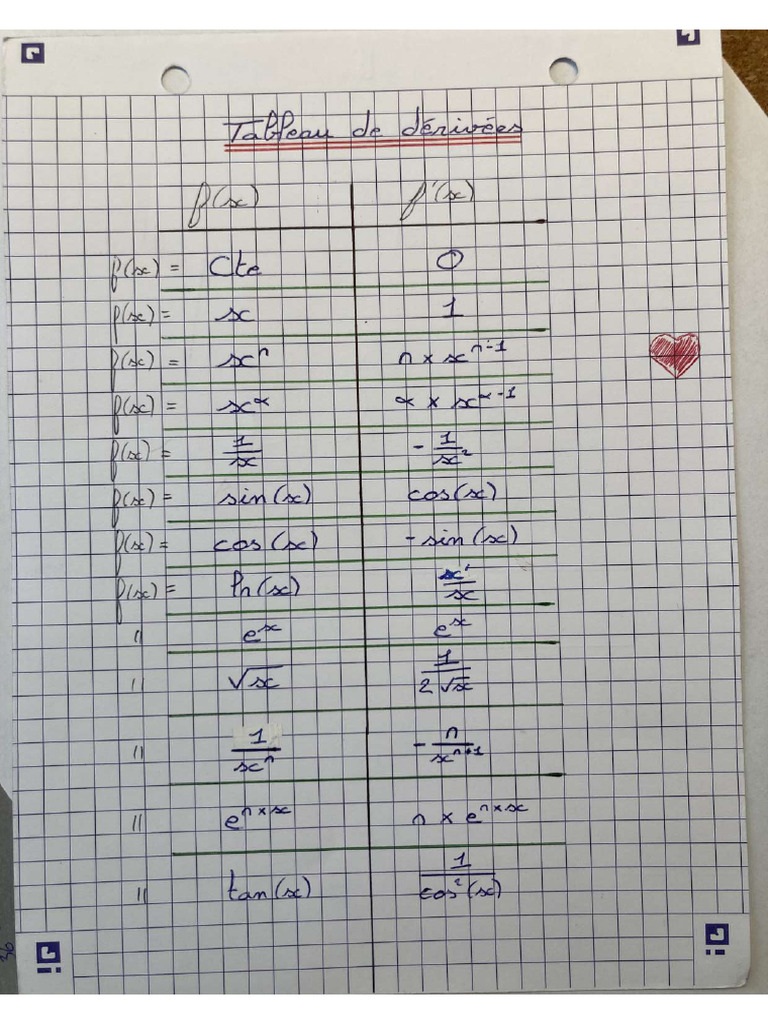 Tableau de dérivées
f(x) f'(x)
f(x) = Cte 0
f(x) = x 1
f(x) = xⁿ n × xⁿ⁻¹
f(x) = x^α α × x^(α-1)
f(x) = 1/x - 1/x²
f(x) = sin(x) cos(x)
f(x) = cos(x) -sin(x)
f(x) = ln(x) x'/x
" eˣ eˣ
" √x 1/(2√x)
" 1/xⁿ - n/xⁿ⁺¹
" e^(n×x) n × e^(n×x)
" tan(x) 1/cos²(x)